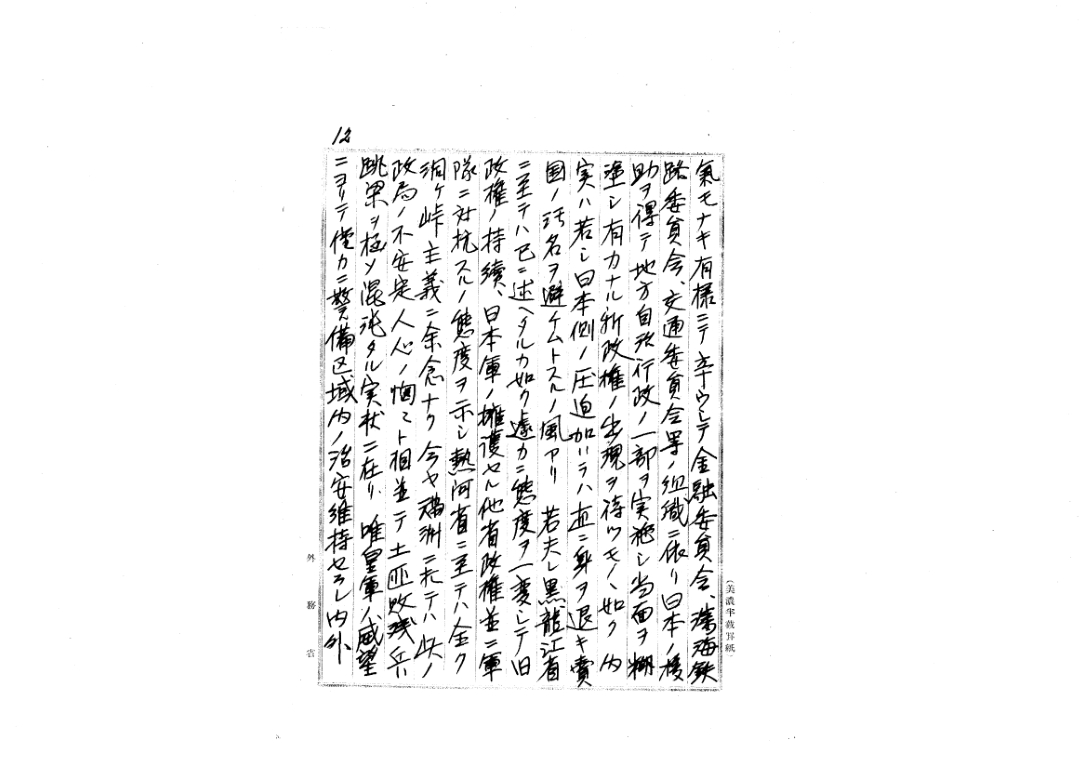 12
氣モナキ有様ニテ辛ウシテ金融委員会、瀋海鉄
路委員会、交通委員会等ノ組織ニ依リ日本ノ援
助ヲ得テ地方自治行政ノ一部ヲ実施シ当面ヲ糊
塗シ有力ナル新政権ノ出現ヲ待ツモノヽ如ク内
実ハ若シ日本側ノ圧迫加ハラハ直ニ身ヲ退キ賣
国ノ汚名ヲ避ケムトスルノ風アリ 若夫レ黒龍江省
ニ至テハ已ニ述ヘタルカ如ク遽カニ態度ヲ一変シテ旧
政権ノ持續、日本軍ノ擁護セル他省政権並ニ軍
隊ニ対抗スルノ態度ヲ示シ熱河省ニ至テハ全ク
洞ケ峠主義ニ余念ナク今ヤ満洲ニ於テハ此ノ
政局ノ不安定人心ノ恟々ト相並テ土匪敗残兵ハ
跳梁ヲ極メ混沌タル実状ニ在リ、唯皇軍ノ威望
ニヨリテ僅カニ警備区域内ノ治安維持セラレ内外
(美濃半截罫紙)
外務省